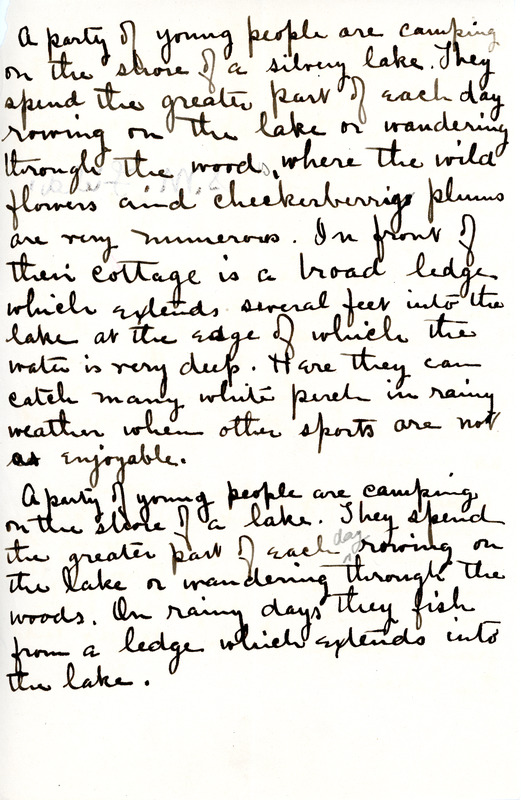 A party of young people are camping
on the shore of a silvery lake. They
spend the greater part of each day
rowing on the lake or wandering
through the woods, where the wild
flowers and checkerberries plums
are very numerous. In front of
their cottage is a broad ledge
which extends several feet into the
lake at the edge of which the
water is very deep. Here they can
catch many white perch in rainy
weather when other sports are not
as enjoyable.
A party of young people are camping
on the shore of a lake. They spend
the greater part of each day rowing on
the lake or wandering through the
woods. On rainy days they fish
from a ledge which extends into
the lake.